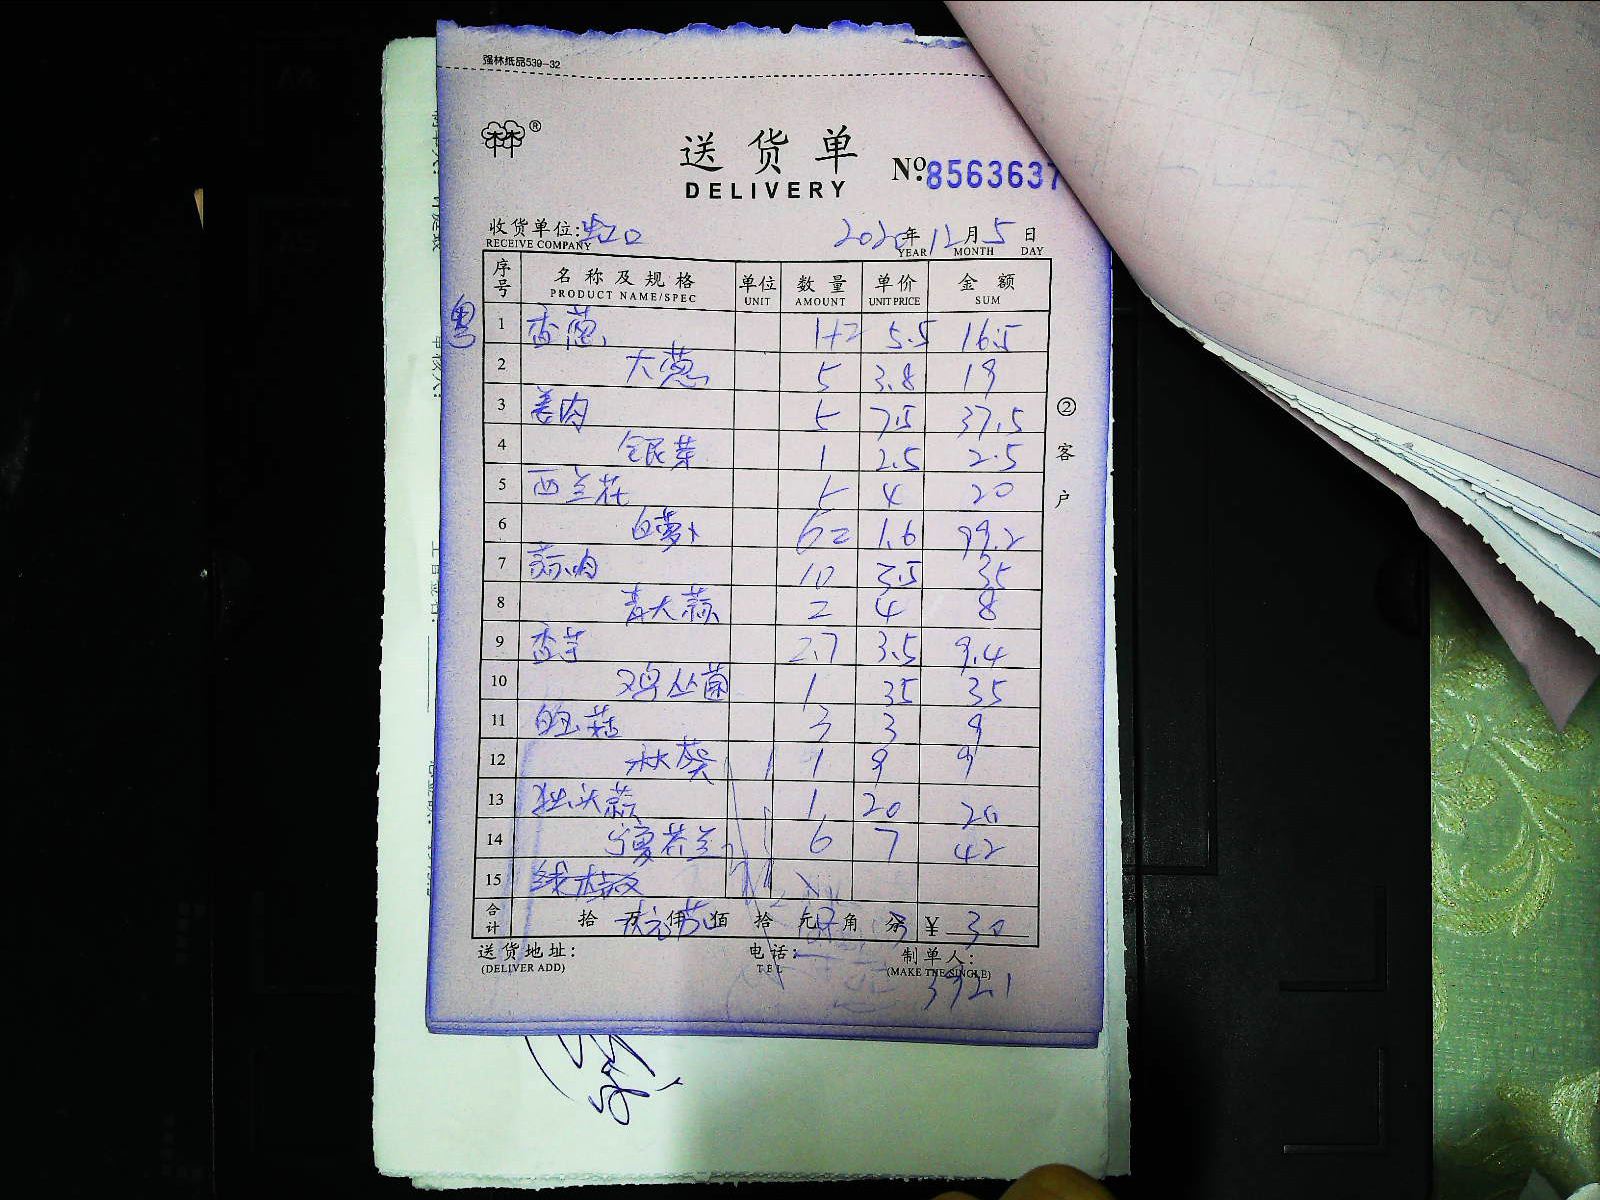 强林纸品539-32
林林®
送货单
DELIVERY
Nº:8563637
收货单位:虹口 2020年12月5日
RECEIVE COMPANY YEAR MONTH DAY
序号 名称及规格 单位 数量 单价 金额
PRODUCT NAME/SPEC UNIT AMOUNT UNIT PRICE SUM
粤
1 香葱 1+2 5.5 16.5
2 大葱 5 3.8 19
3 姜肉 5 7.5 37.5
4 银芽 1 2.5 2.5
5 西兰花 5 4 20
6 白萝卜 62 1.6 99.2
7 蒜肉 10 3.5 35
8 青大蒜 2 4 8
9 香芋 2.7 3.5 9.4
10 鸡丛菌 1 35 35
11 白玉菇 3 3 9
12 秋葵 1 9 9
13 独头蒜 1 20 20
14 宁夏芥兰 6 7 42
15
合计 拾 万 仟 佰 拾 元 角 分 ¥ 30
②客户
送货地址: 电话: 制单人:
(DELIVER ADD) TEL (MAKE THE SINGLE)
392.1